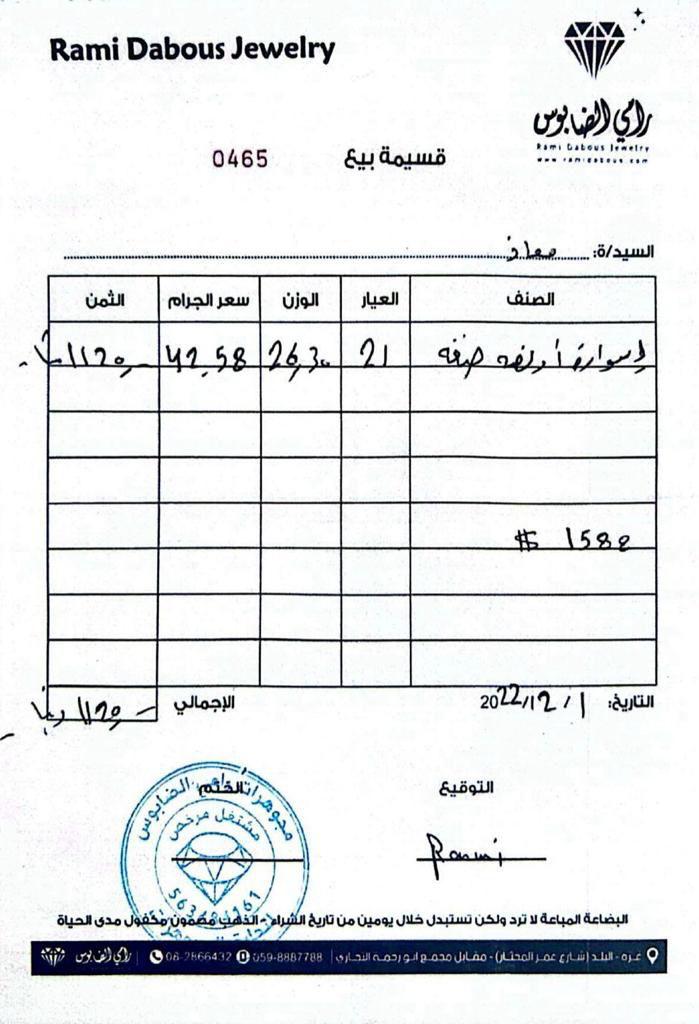 Rami Dabous Jewelry
رامي الضابوس
Rami Dabous Jewelry
www.ramidabous.com
قسيمة بيع 0465
السيد/ة: معاذ
الصنف العيار الوزن سعر الجرام الثمن
إسوارة أونصه 21 26,30 42.58 1120,-
$ 1588
التاريخ: 2022/12/1 الإجمالي 1120,-
التوقيع الختم
Rami
مجوهرات رامي الضابوس
مشتغل مرخص
البضاعة المباعة لا ترد ولكن تستبدل خلال يومين من تاريخ الشراء - الذهب مضمون مكفول مدى الحياة
غزة - البلد (شارع عمر المختار) - مقابل مجمع ابو رحمة التجاري | 059-8887788 08-2866432 | رامي الضابوس